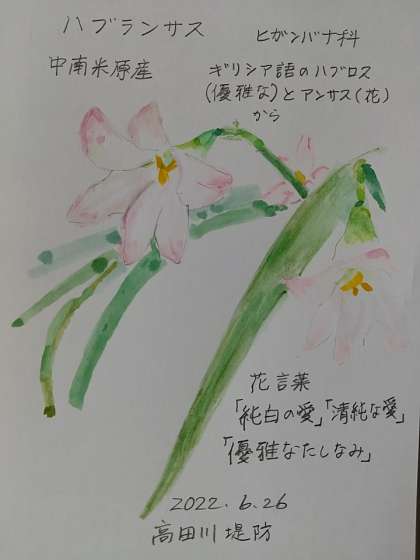 ハブランサス
ヒガンバナ科
中南米原産
ギリシア語のハブロス
(優雅な)とアンサス(花)
から
花言葉
「純白の愛」「清純な愛」
「優雅なたしなみ」
2022.6.26
高田川堤防